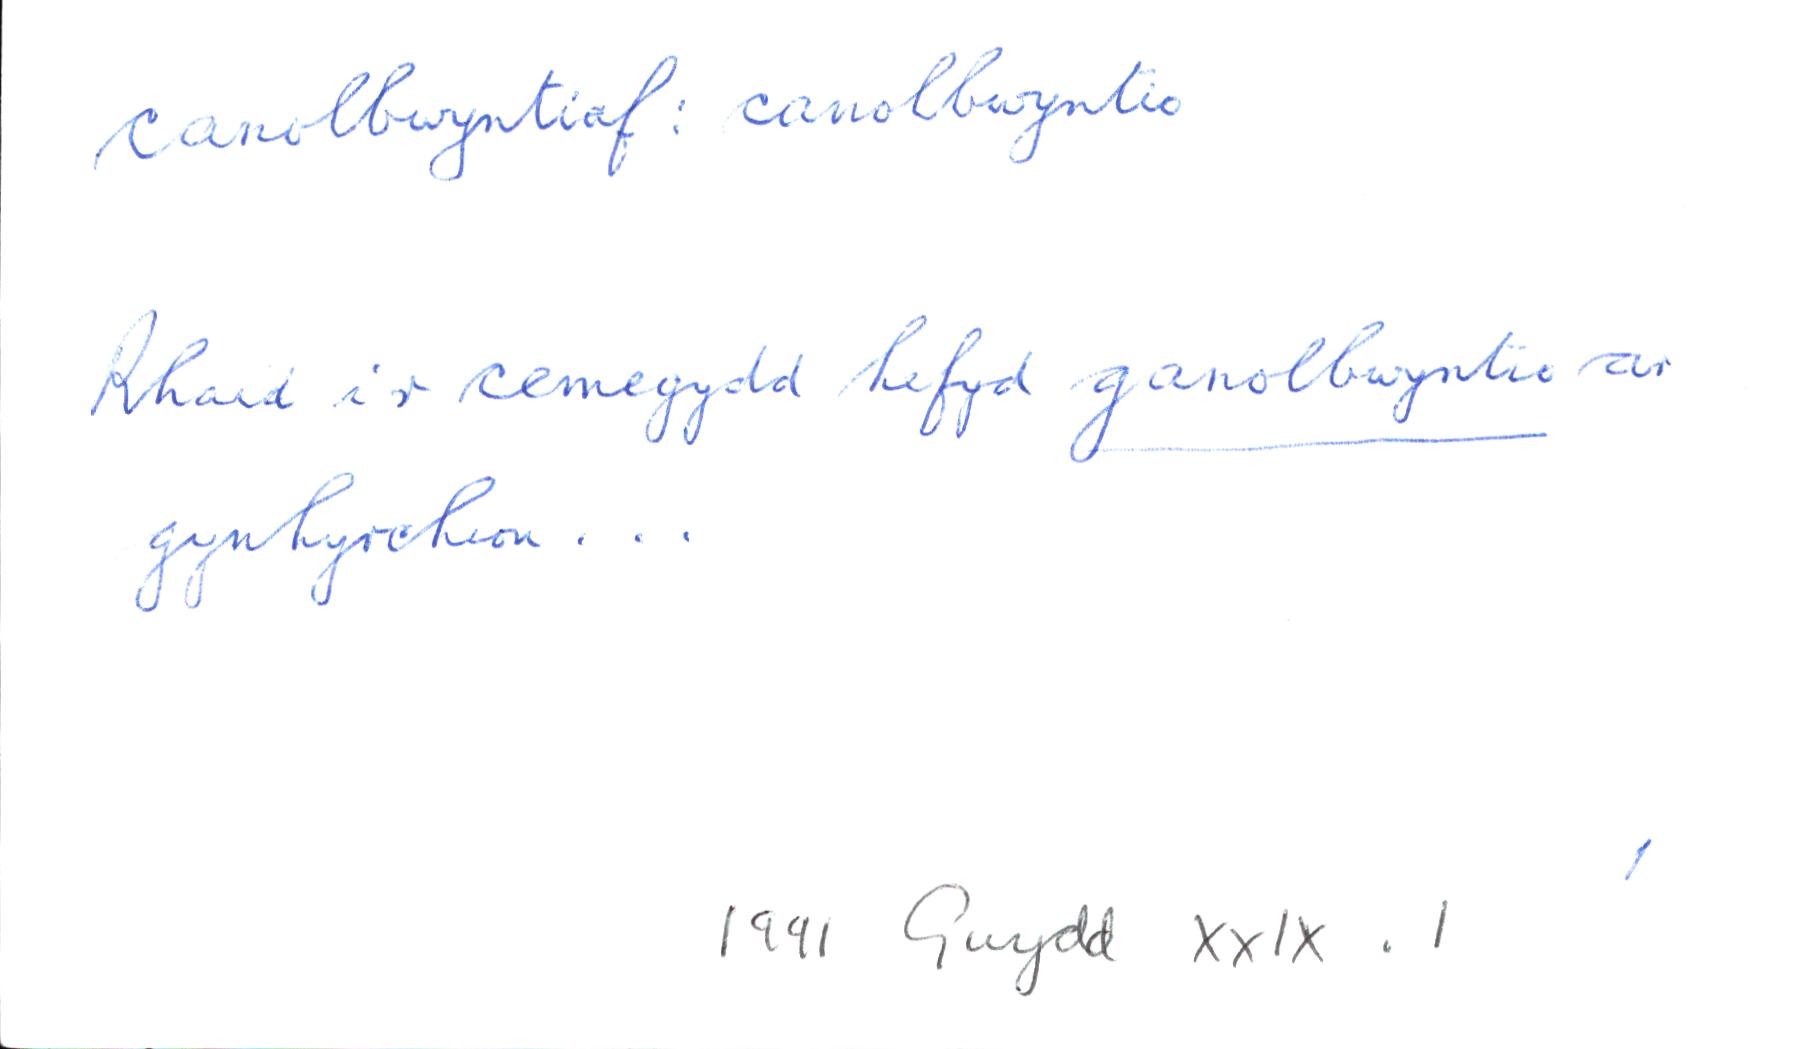 canolbwyntiaf: canolbwyntio
Rhaid i'r cemegydd hefyd ganolbwyntio ar
gynhyrchion . . .
1991 Gwydd XXIX . 1